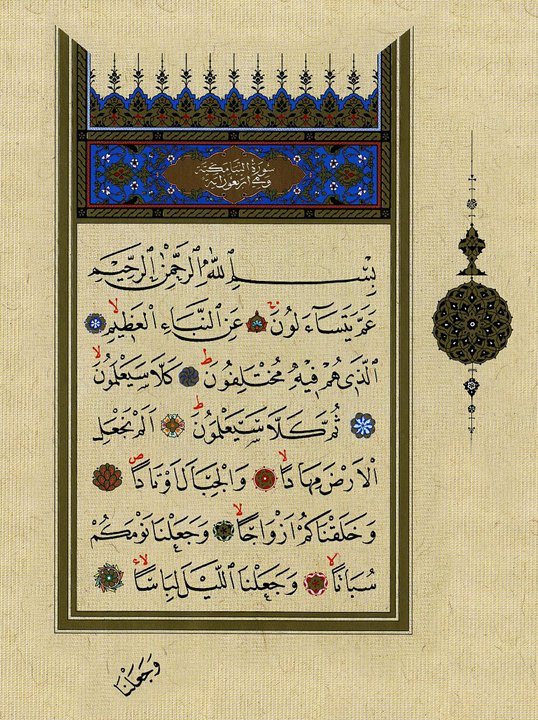 سورة النبأ مكية
وهي اربعون اية
بِسْــمِ اللهِ الرَّحْمٰنِ الرَّحِيمِ
عَمَّ يَتَسَاءَلُونَ عَنِ النَّبَاءِ الْعَظِيمِ لا
الَّذِي هُمْ فِيهِ مُخْتَلِفُونَ ط كَلَّا سَيَعْلَمُونَ لا
ثُمَّ كَلَّا سَيَعْلَمُونَ ط اَلَمْ نَجْعَلِ
الْاَرْضَ مِهَادًا لا وَالْجِبَالَ اَوْتَادًا ص
وَخَلَقْنَاكُمْ اَزْوَاجًا لا وَجَعَلْنَا نَوْمَكُمْ
سُبَاتًا لا وَجَعَلْنَا الَّيْلَ لِبَاسًا لا
وَجَعَلْنَا